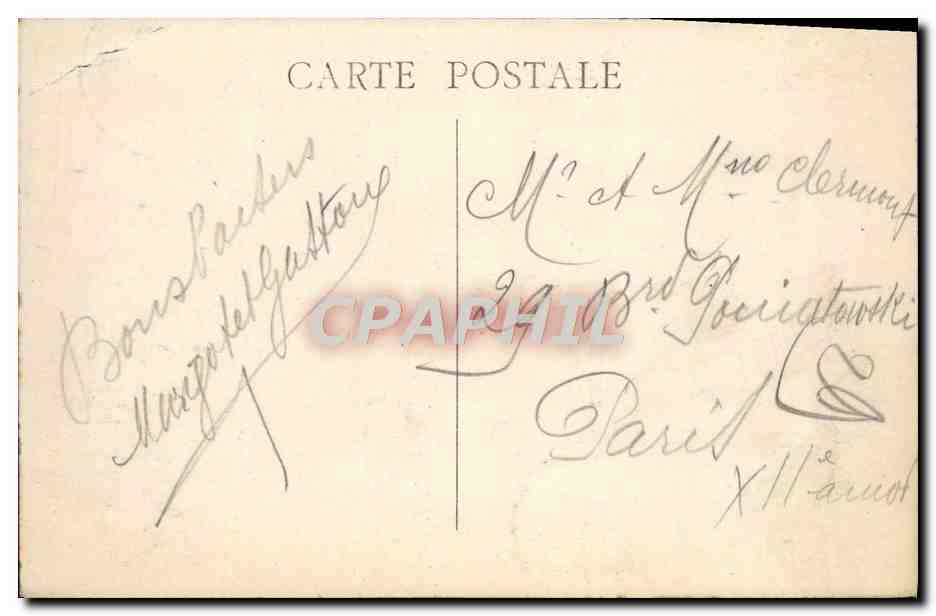 CARTE POSTALE
Bons Baisers
Margot et Gaston
Mr et Mme Clermont
29 Brd Poniatowski
Paris
XIIe
CPAPHIL